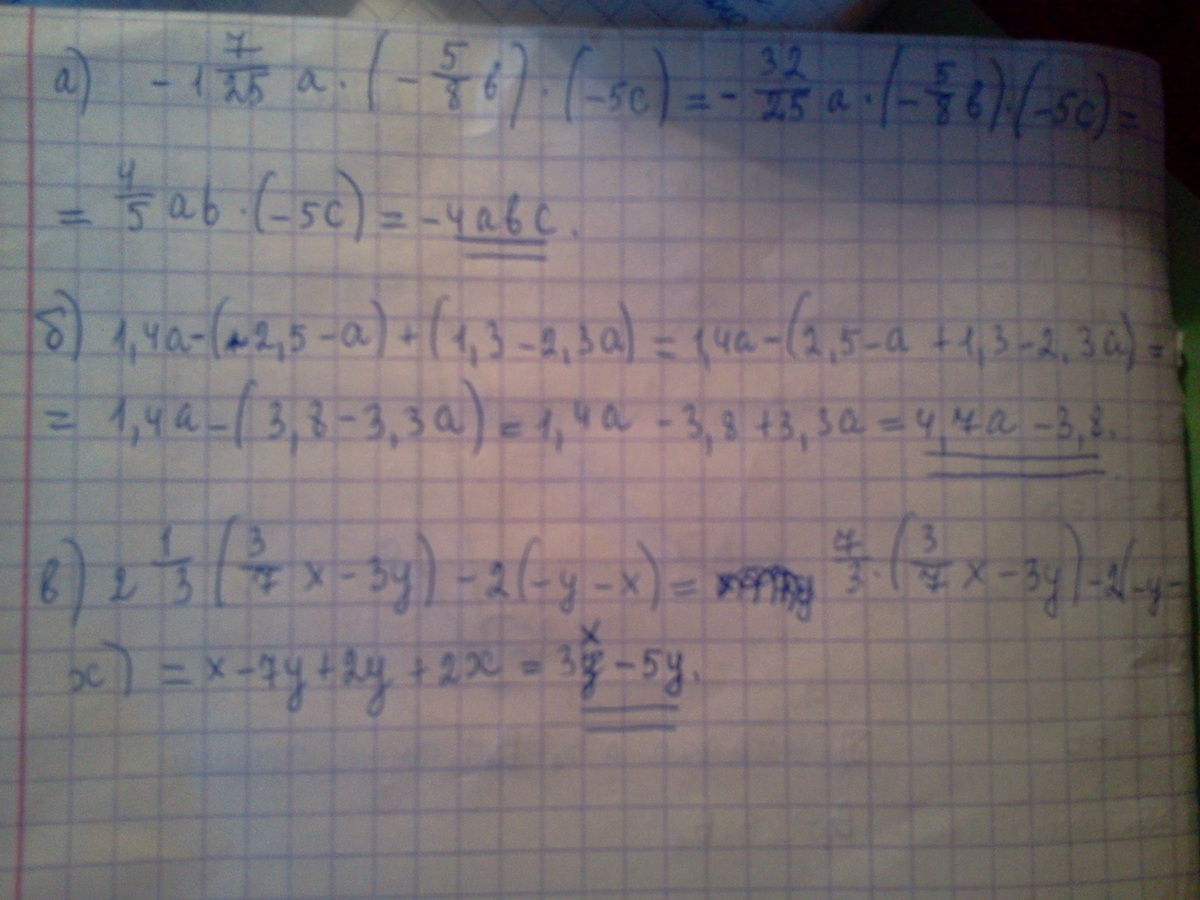 а) - 1 7/25 a · (- 5/8 b) · (-5c) = - 32/25 a · (- 5/8 b) · (-5c) =
= 4/5 ab · (-5c) = -4abc.
б) 1,4a-(2,5-a)+(1,3-2,3a) = 1,4a-(2,5-a+1,3-2,3a) =
= 1,4a-(3,8-3,3a) = 1,4a -3,8+3,3a = 4,7a -3,8.
в) 2 1/3 (3/7 x - 3y) - 2(-y-x) = 7/3 · (3/7 x - 3y) - 2(-y-
x) = x-7y+2y+2x = 3x-5y.